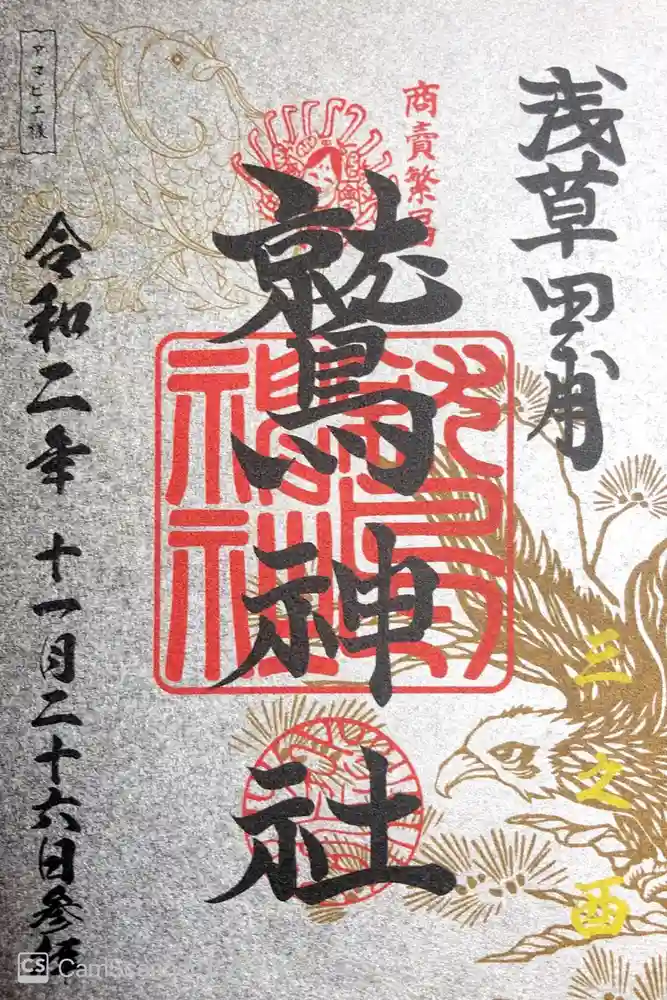 浅草田甫
商賣繁昌
鷲神社
三之酉
令和二年十一月二十六日参拝
アマビヱ様
CS CamSc